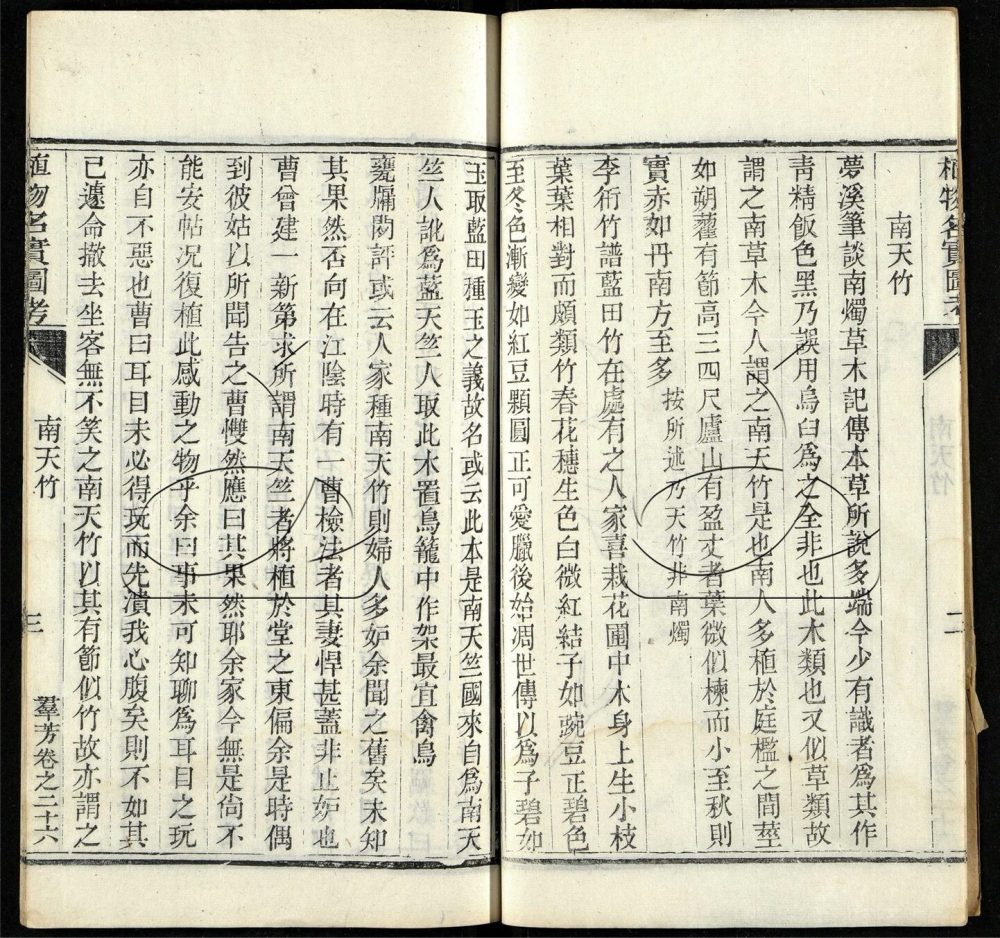 植物名實圖考
南天竹
夢溪筆談南燭草木記傳本草所說多端今少有識者爲其作
靑精飯色黑乃誤用烏臼爲之全非也此木類也又似草類故
謂之南草木今人謂之南天竹是也南人多植於庭檻之間莖
如朔藋有節高三四尺廬山有盈丈者葉微似楝而小至秋則
實赤如丹南方至多 按所述乃天竹非南燭
李衎竹譜藍田竹在處有之人家喜栽花圃中木身上生小枝
葉葉相對而頗類竹春花穗生色白微紅結子如豌豆正碧色
至冬色漸變如紅豆顆圓正可愛臘後始凋世傳以爲子碧如
玉取藍田種玉之義故名或云此本是南天竺國來自爲南天
竺人訛爲藍天竺人取此木置鳥籠中作架最宜禽鳥
甕牖閑評或云人家種南天竹則婦人多妒余聞之舊矣未知
其果然否向在江陰時有一曹檢法者其妻悍甚蓋非止妒也
曹曾建一新第求所謂南天竺者將植於堂之東偏余是時偶
到彼姑以所聞告之曹戄然應曰其果然耶余家今無是尙不
能安帖况復植此感動之物乎余曰事未可知聊爲耳目之玩
亦自不惡也曹曰耳目未必得玩而先潰我心腹矣則不如其
已遽命撤去坐客無不笑之南天竹以其有節似竹故亦謂之
植物名實圖考
南天竹
三
羣芳卷之二十六